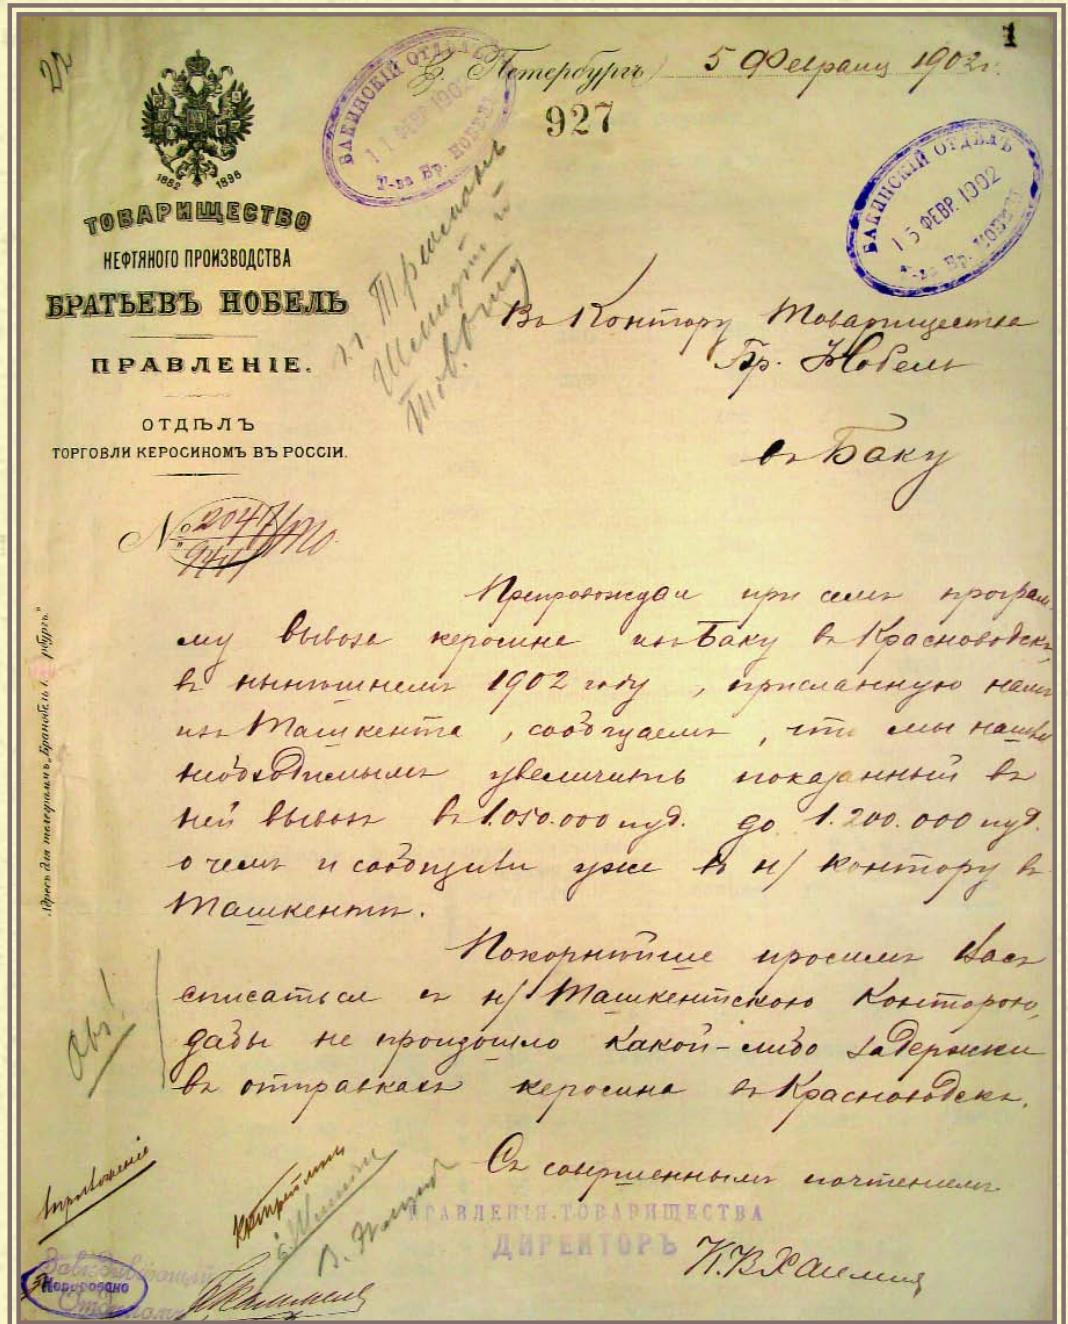 1
С. Петербургъ 5 Февраля 1902 г.
БАКИНСКІЙ ОТДѢЛЪ
11 ФЕВР 1902
Т-ва Бр. НОБЕЛЬ
927
БАКИНСКІЙ ОТДѢЛЪ
15 ФЕВР. 1902
Т-ва Бр. НОБЕЛЬ
1882 1896
ТОВАРИЩЕСТВО
НЕФТЯНОГО ПРОИЗВОДСТВА
БРАТЬЕВЪ НОБЕЛЬ
ПРАВЛЕНІЕ.
ОТДѢЛЪ
ТОРГОВЛИ КЕРОСИНОМЪ ВЪ РОССІИ.
Въ Контору Товарищества
Бр. Нобель
въ Баку
№ 2047
Адресъ для телеграммъ „Бранобель
Препровождая при семъ програм-
му вывоза керосина изъ Баку въ Красноводскъ
въ нынѣшнемъ 1902 году, присланную намъ
изъ Ташкента, сообщаемъ, что мы нашли
необходимымъ увеличить показанный въ
ней вывозъ въ 1.050.000 пуд. до 1.200.000 пуд.
о чемъ и сообщили уже въ н/ контору въ
Ташкентѣ.
Покорнѣйше просимъ Васъ
списаться съ н/ Ташкентскою Конторою,
дабы не произошло какой-либо задержки
въ отправкахъ керосина въ Красноводскъ.
Съ совершеннымъ почтеніемъ
ПРАВЛЕНІЯ ТОВАРИЩЕСТВА
ДИРЕКТОРЪ
приложеніе
Завѣдывающій
Отдѣломъ
Копировано